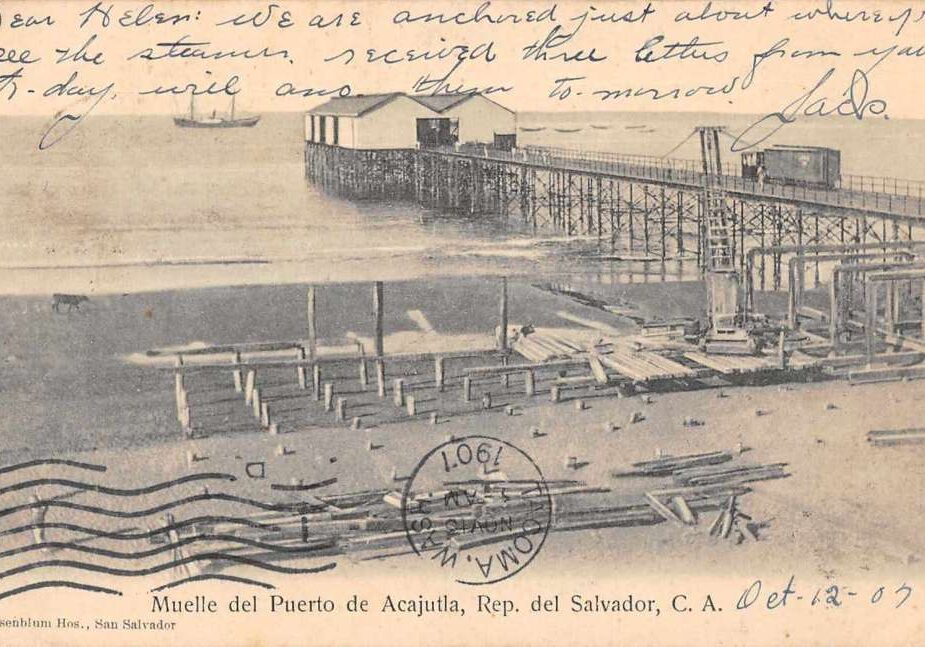 Dear Helen: We are anchored just about where you
see the steamer. received three letters from you
to-day, will ans. them to-morrow. Jack.
TACOMA, WASH.
NOV 13
AM
1907
Muelle del Puerto de Acajutla, Rep. del Salvador, C. A. Oct-12-07
senblum Hos., San Salvador